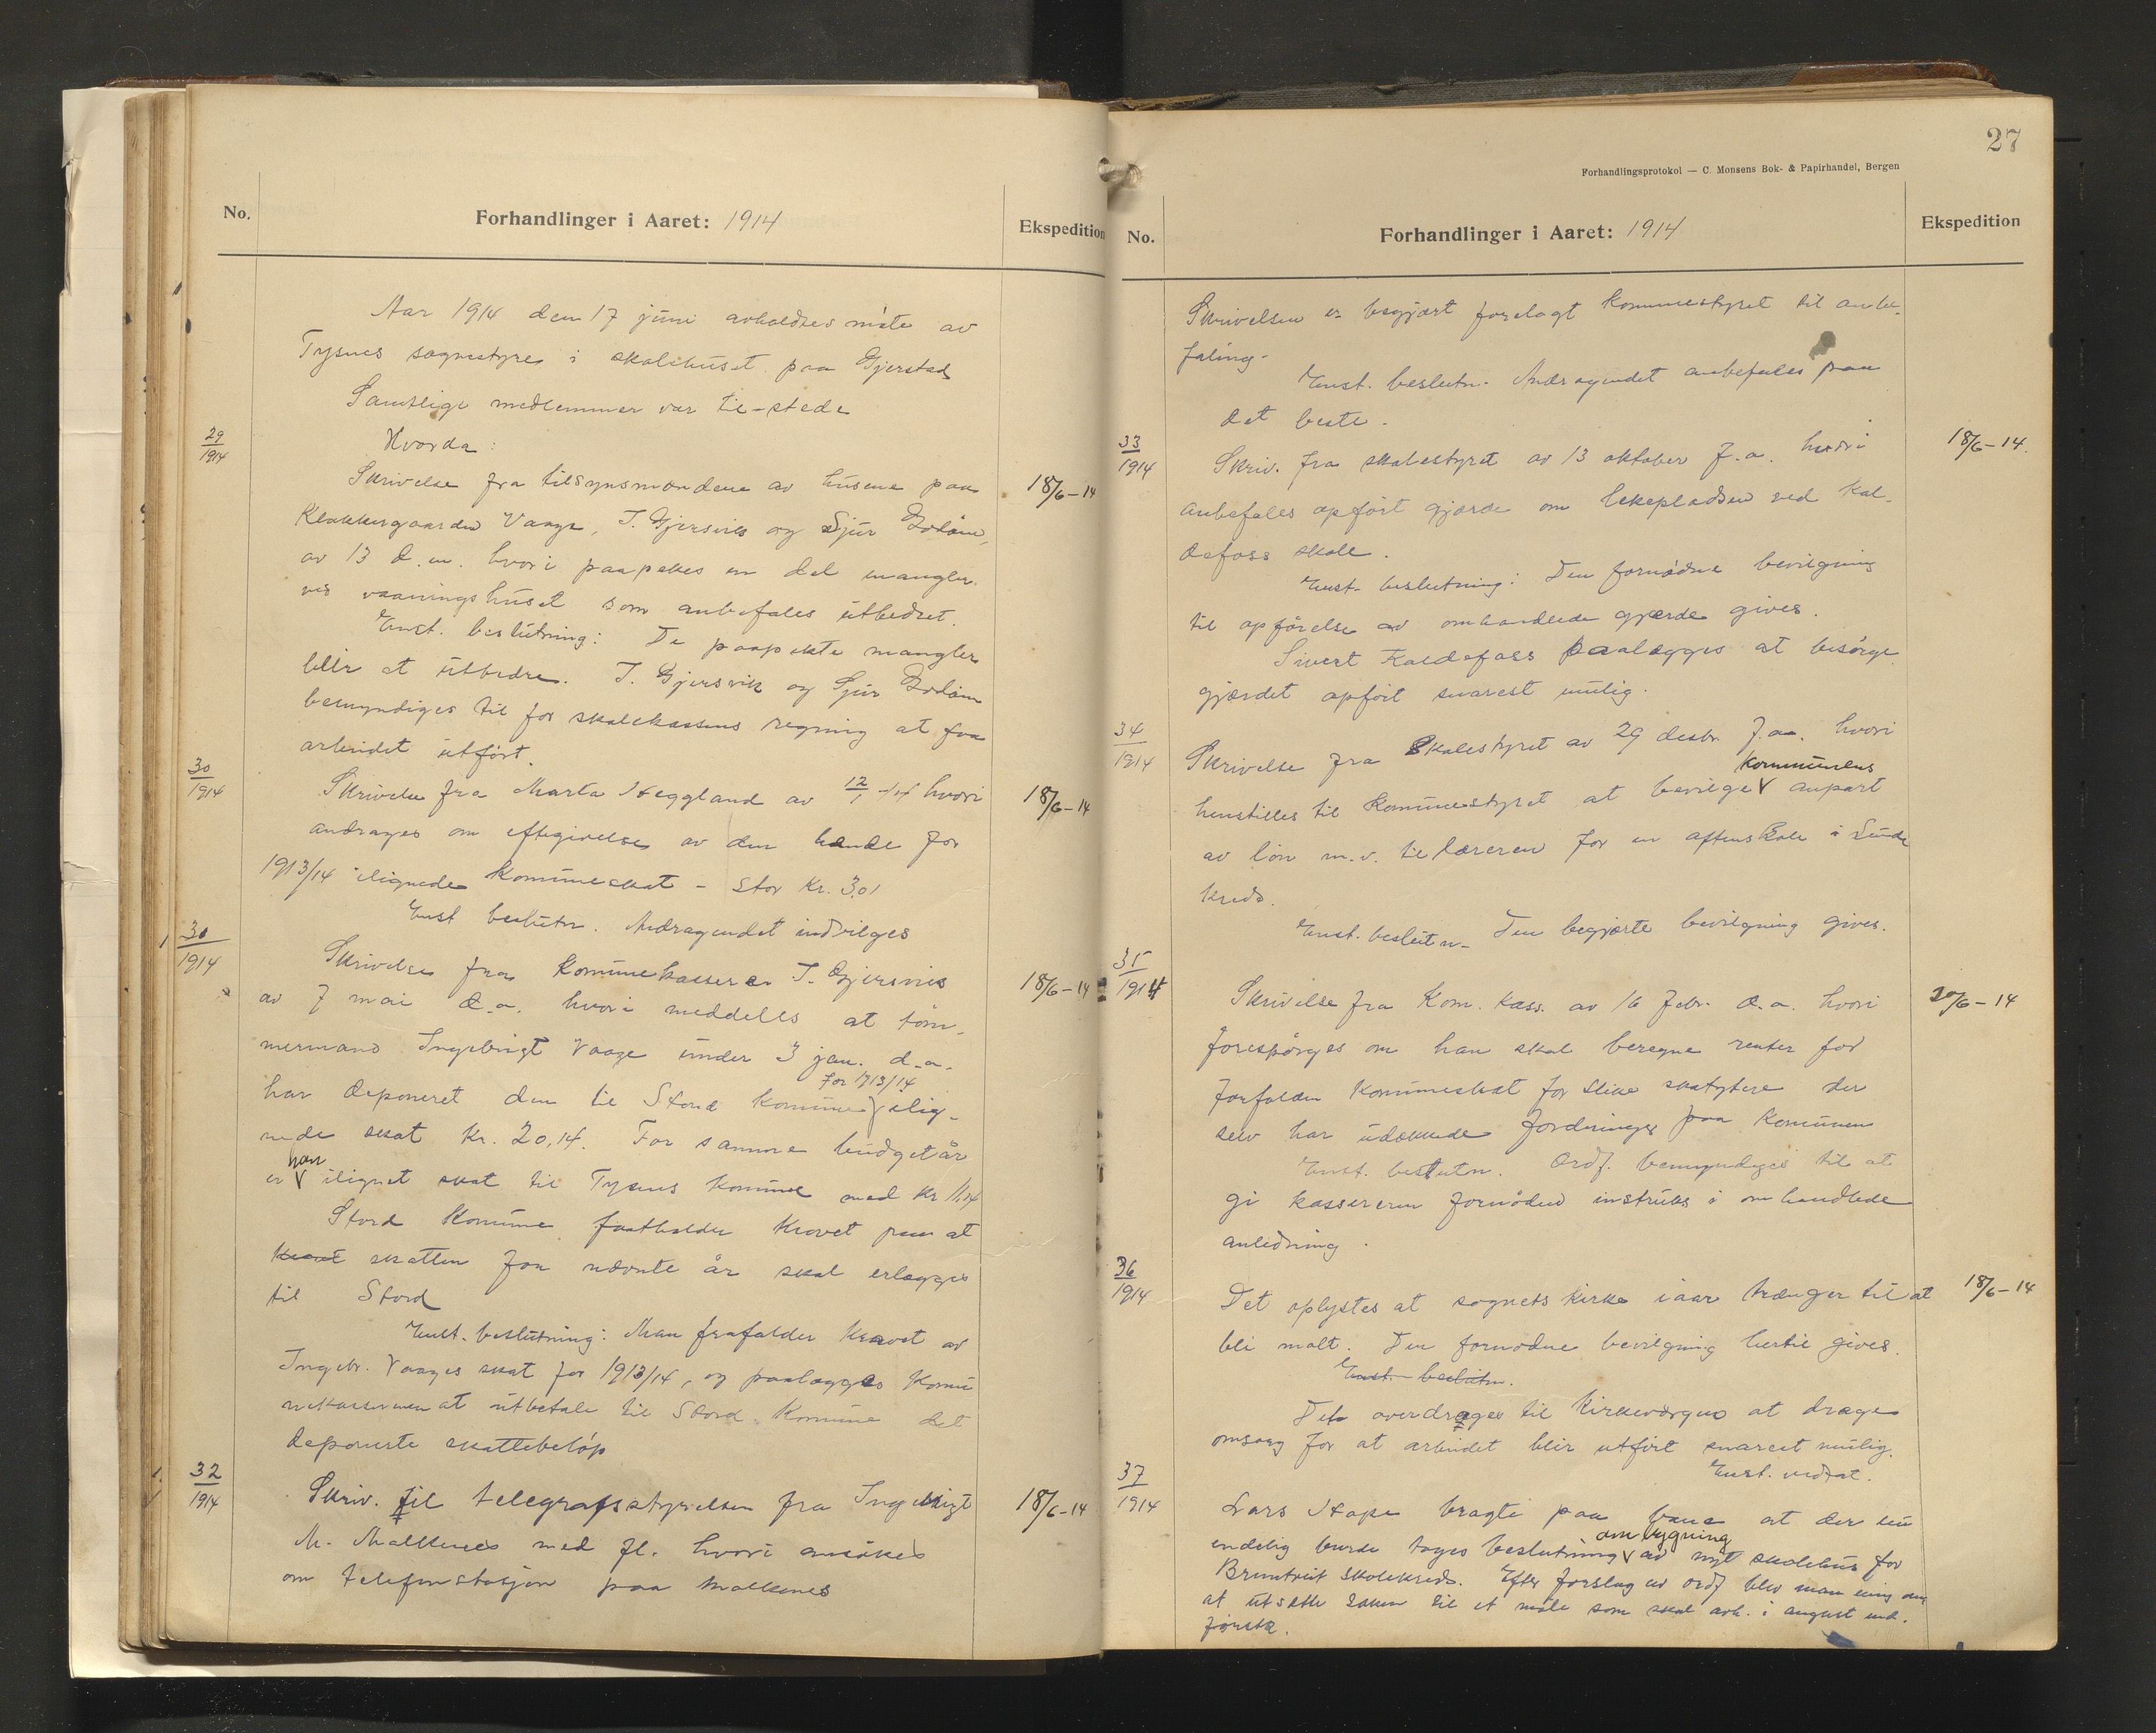 No.
Forhandlinger i Aaret: 1914
Ekspedition
Aar 1914 den 17 juni avholdtes möte av
Tysnes sognestyre i skolehuset paa Gjerstad
Samtlige medlemmer var til-stede
Hvorda:
29/1914
Skrivelse fra tilsynsmændene av husene paa
18/6-14
Klokkergaarden Vaage, T. Gjersvik og Sjur
av 13 d.m. hvori paapekes en del mangler
ved vaaningshuset som anbefales utbedret.
Enst. beslutning: De paapekte mangler
blir at utbedre. T. Gjersvik og Sjur
bemyndiges til for skolekassens regning at faa
arbeidet utfört.
30/1914
Skrivelse fra Marta Heggland av 12/1 -14 hvori
18/6-14
andrages om eftergivelse av den hende for
1913/14 ilignede kommuneskat - stor Kr. 3.01
Enst beslutn. Andragendet indvilges
31/1914
Skrivelse fra Kommunekasserer T. Gjersvik
18/6-14
av 7 mai d.a. hvori meddeles at töm-
mermand Ingebrigt Vaage under 3 jan. d.a.
har deponeret den til Stord kommune for 1913/14 ilig-
nede skat Kr. 20,14. For samme budgetår
er han ilignet skat til Tysnes kommune med Kr 11,14
Stord Komune fastholder kravet paa at
kravet skatten for nævnte år skal erlægges
til Stord
Enst. beslutning: Man frafalder kravet av
Ingebr. Vaages skat for 1913/14, og paalægges Komu
nekassereren at utbetale til Stord Komune det
deponerte skattebelöp
32/1914
Skriv. til telegrafstyrelsen fra Ingebrigt
18/6-14
M. Malkenes med fl. hvori ansökes
om telefonstasjon paa Malkenes
27
Forhandlingsprotokol — C. Monsens Bok- & Papirhandel, Bergen
No.
Forhandlinger i Aaret: 1914
Ekspedition
Skrivelsen er begjært forelagt kommunestyret til anbe-
faling-
Enst. beslutn. Andragendet anbefales paa
det beste.
33/1914
Skriv. fra skolestyret av 13 oktober f.a. hvori
18/6-14.
anbefales opfört gjærde om lekepladsen ved Kal-
defoss skole.
Enst. beslutning: Den fornødne bevilgning
til opförelse av omhandlede gjærde gives.
Sivert Kaldefoss paalægges at besörge
gjærdet opfört snarest mulig.
34/1914
Skrivelse fra Skolestyret av 29 desbr. f.a. hvori
henstilles til Kommunestyret at bevilge kommunens anpart
av lön m.v. til læreren for en aftenskole i Sunde
kreds.
Enst. beslutn- Den begjærte bevilgning gives.
35/1914
Skrivelse fra Kom. kass. av 16 febr. d.a. hvori
20/6-14
forespörges om han skal beregne renter for
forfalden kommuneskat for slike skatytere der
selv har udækkede fordringer paa komunen
Enst. beslutn. Ordf. bemyndiges til at
gi kassereren fornöden instruks i omhandlede
anledning.
36/1914
Det oplystes at sognets kirke iaar trænger til at
18/6-14
bli malt. Den fornødne bevilgning hertil gives.
Enst. beslutn.
Det overdrages til Kirkeværgen at drage
omsorg for at arbeidet blir utfört snarest mulig.
Enst. vedtat.
37/1914
Lars Hope bragte paa bane at der nu
endelig burde tages beslutning om bygning av nyt skolehus for
Bruntveit skolekreds. Efter forslag av ordf blev man enig om
at utsætte saken til et möte som skal avh. i august md.
förstk.